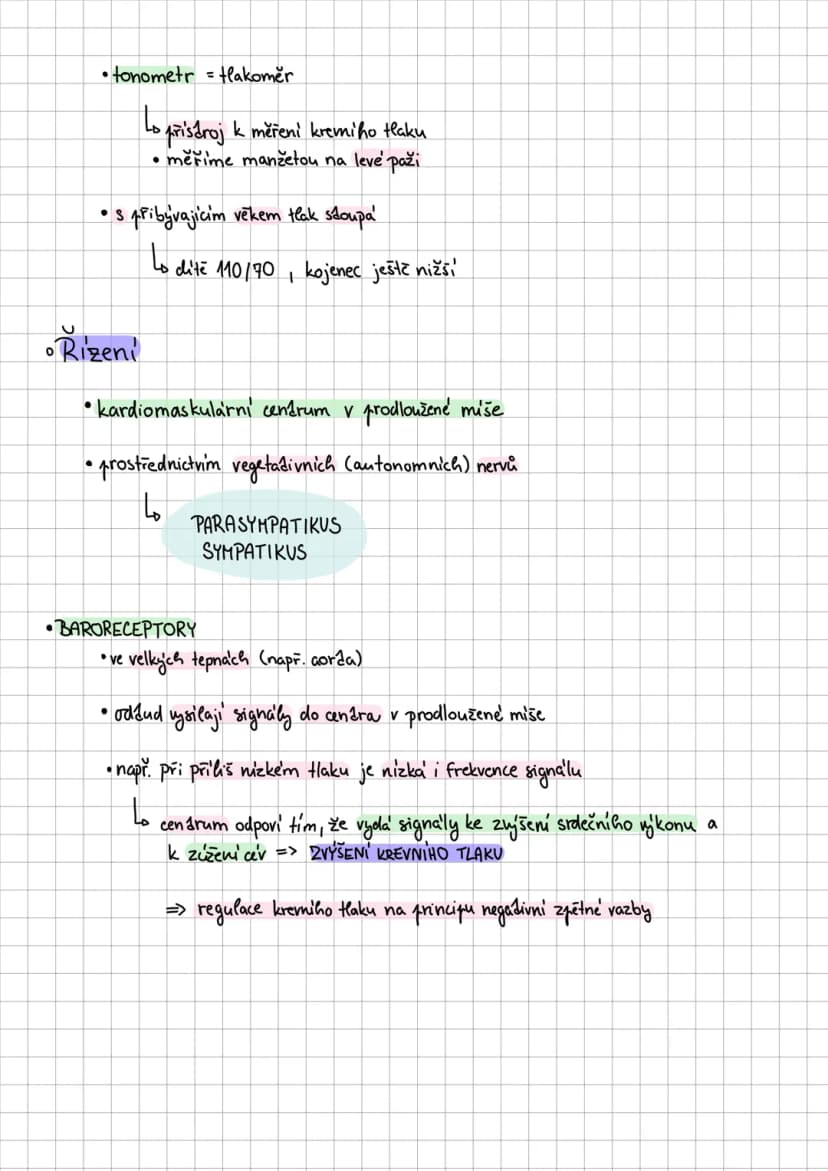 • tonometr = tlakoměr
↳ přístroj k měření krevního tlaku
• měříme manžetou na levé paži
• s přibývajícím věkem tlak stoupá
↳ dítě 110/70, kojenec ještě nižší
○ Řízení
• kardiomaskulární centrum v prodloužené míše
• prostřednictvím vegetativních (autonomních) nervů
↳ PARASYMPATIKUS
SYMPATIKUS
• BARORECEPTORY
• ve velkých tepnách (např. aorta)
• odtud vysílají signály do centra v prodloužené míše
• např. při příliš nízkém tlaku je nízká i frekvence signálu
↳ centrum odpoví tím, že vydá signály ke zvýšení srdečního výkonu a
k zúžení cév => ZVÝŠENÍ KREVNÍHO TLAKU
=> regulace krevního tlaku na principu negativní zpětné vazby